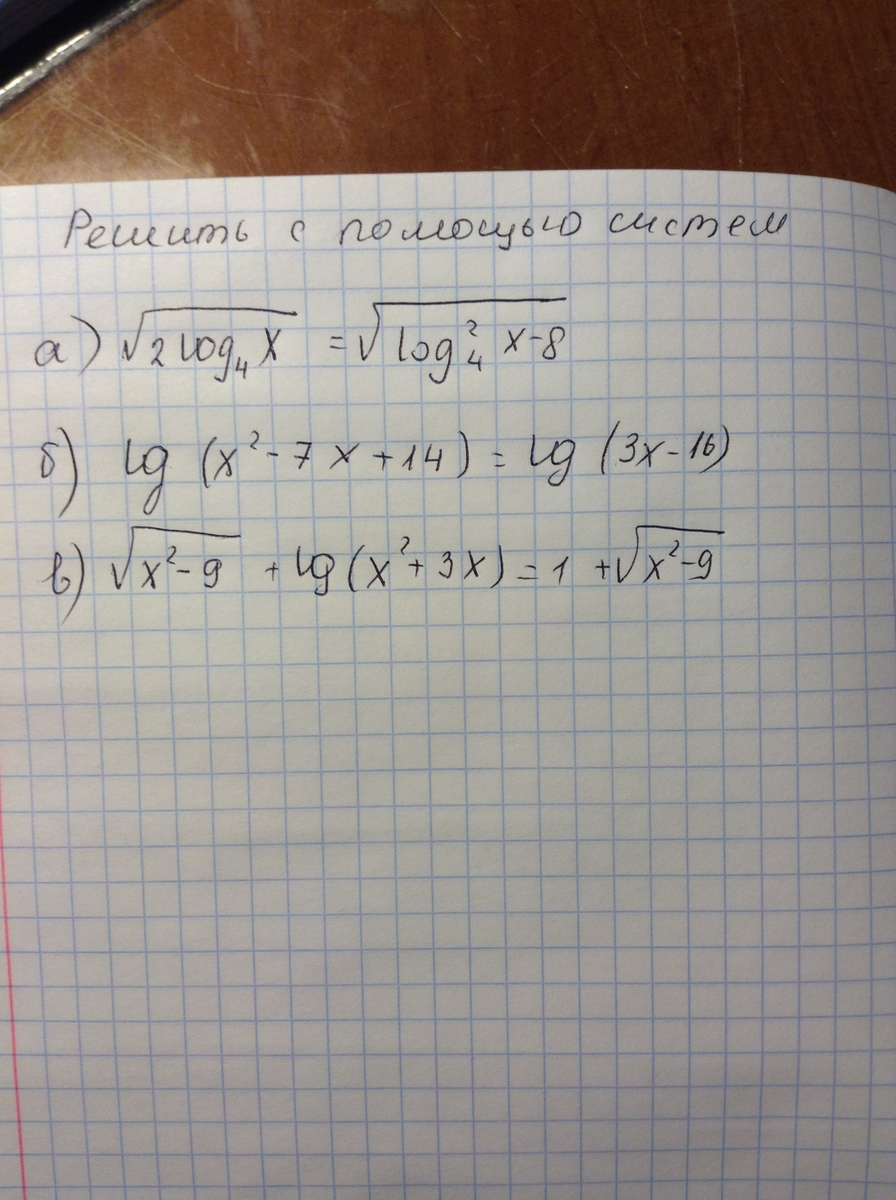 Решить с помощью систем
а) √2 log₄ x = √log₄² x-8
б) lg (x² - 7x + 14) = lg (3x - 16)
в) √x² - 9 + lg (x² + 3x) = 1 + √x² - 9